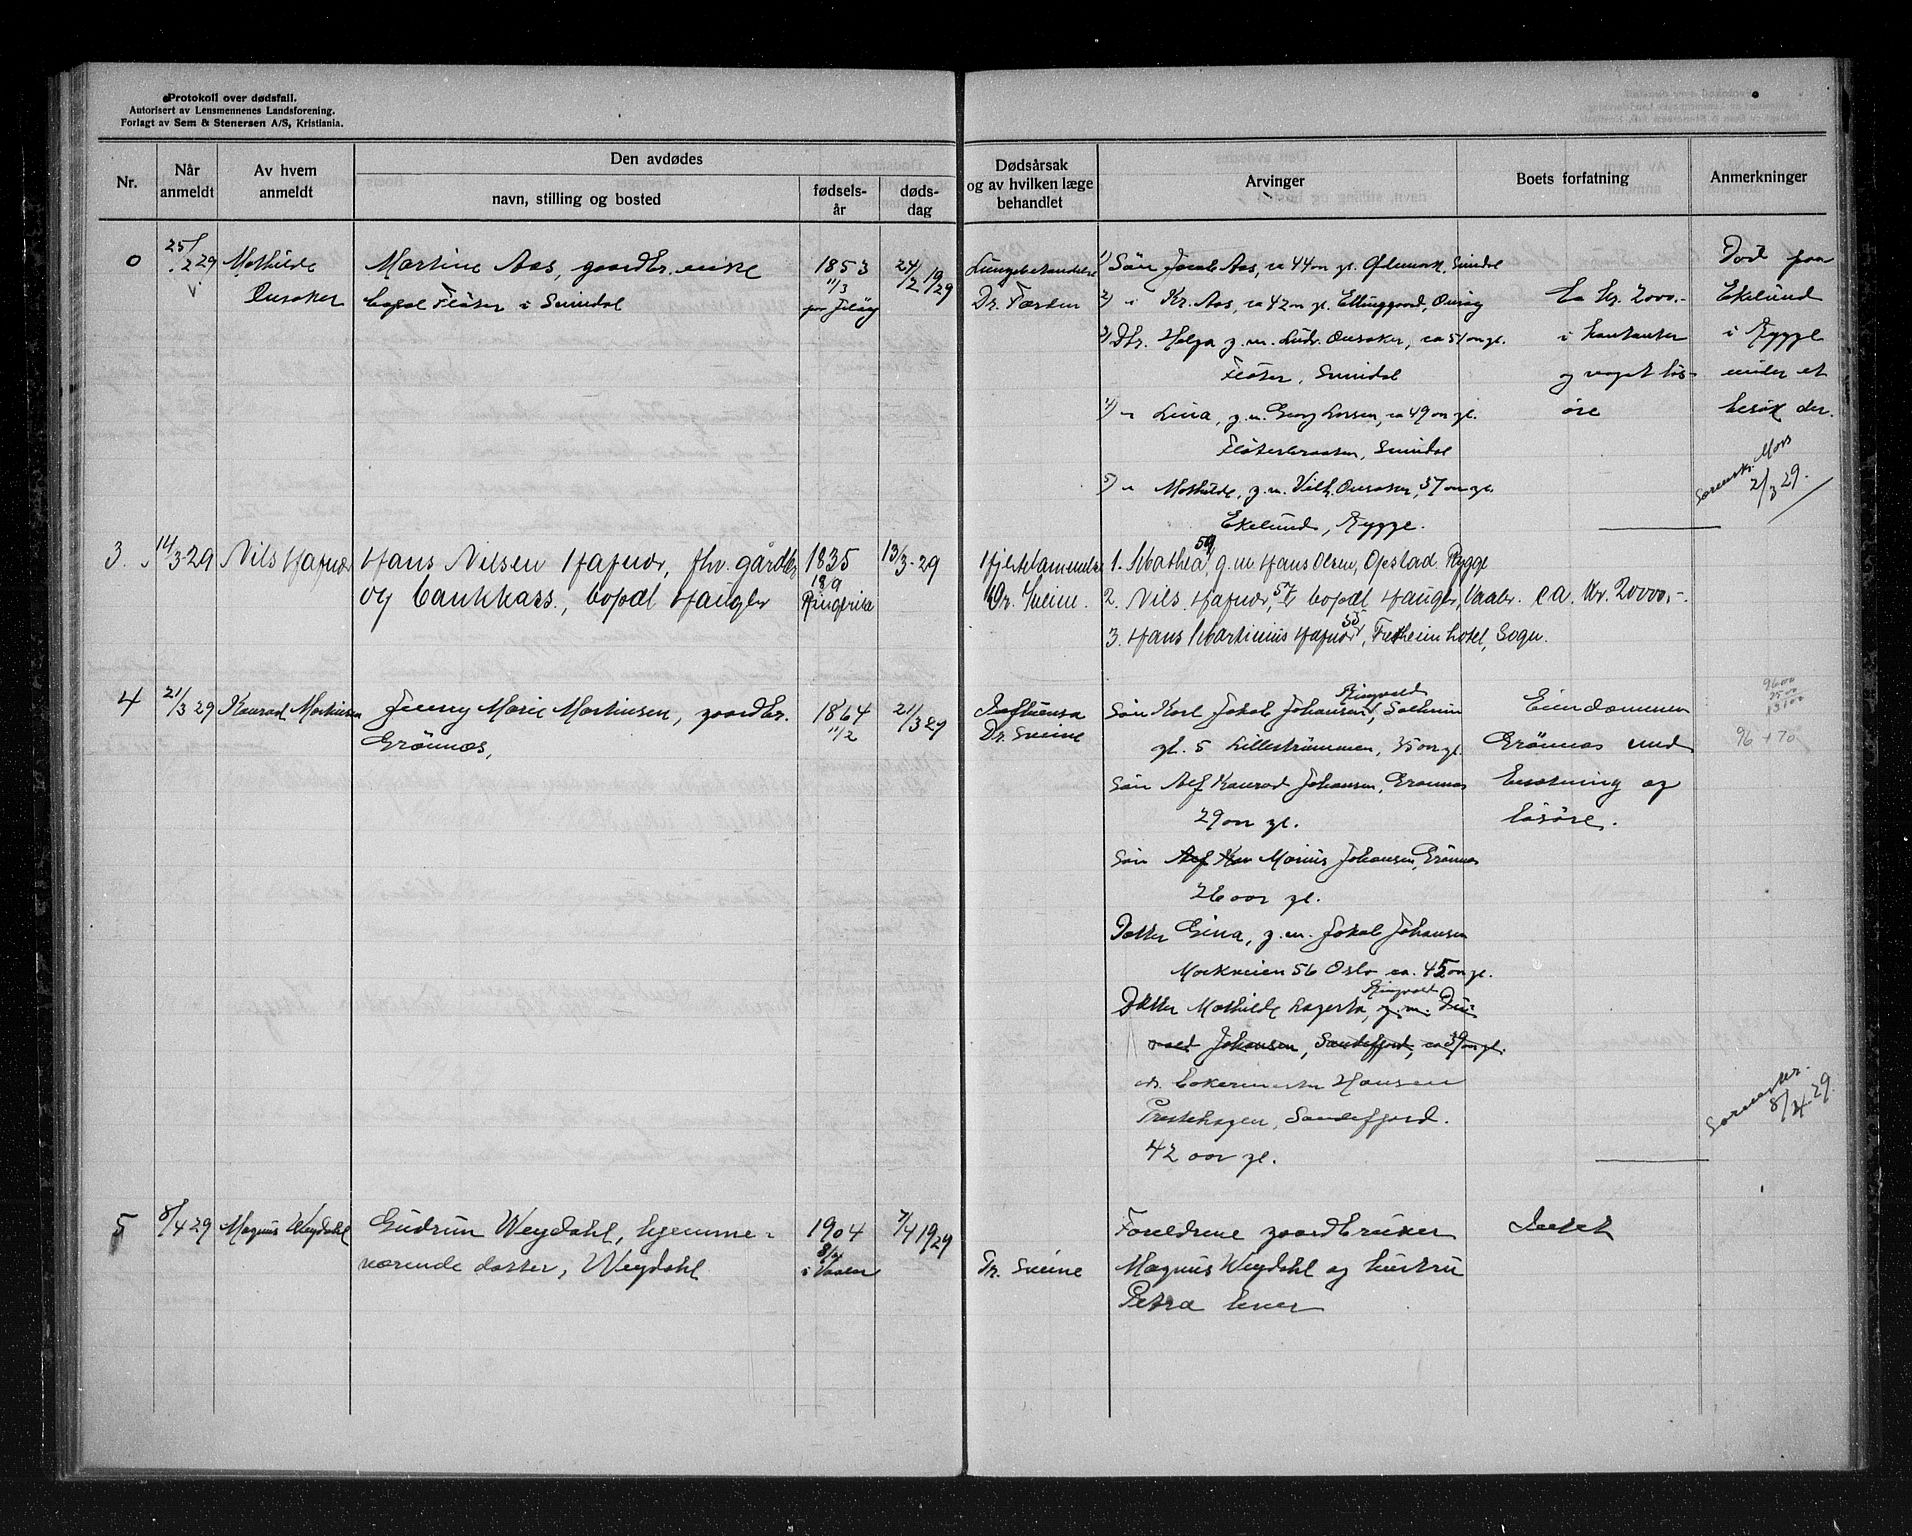 Protokoll over dødsfall.
Autorisert av Lensmennenes Landsforening.
Forlagt av Sem & Stenersen A/S, Kristiania.
Nr.
Når anmeldt
Av hvem anmeldt
Den avdødes
navn, stilling og bosted
fødsels-år
døds-dag
Dødsårsak og av hvilken læge behandlet
Arvinger
Boets forfatning
Anmerkninger
0
25/2 29
Mathilde
Martine Aas, gaardbr. enke
bopæl Fløter i Svindal
1853
11/3
24/2 1929
Dr. Førden
1) Søn Jacob Aas, ca 44 aar gl. Svindal
2) " Kr. Aas, ca 42 aar gl.
3) Dtr. Helga g.m. Ludv. ca 51 aar gl.
Fløter, Svindal
4) " Lina, g.m. Georg Larsen, ca 49 aar gl.
Fløterbraaten, Svindal
5) " Mathilde, g.m. Vilh. 57 aar gl.
Ekelund, Rygge.
ca kr. 2000.-
i kontanter
og noget løs-
øre
Død paa
Ekelund
i Rygge
under et
besøk der.
Sorenskr. Moss
2/3 29.
3.
14/3-29
Nils Hafnor
Hans Nilsen Hafnor, fhv. gårdbr.
og bankkass., bopæl Haugler
1835
18/9
Ringerike
13/3-29
Hjertelammelse
Dr. Sveine.
1. Mathea 59, g.m. Hans Olsen, Opstad Rygge
2. Nils Hafnor, 57, bopæl Haugler, Vaaler.
3. Hans Martinius Hafnor 55, Fretheim hotel, Sogn.
ca. kr. 20000,-.
4
21/3 29
Konrad Martinsen
Jenny Marie Martinsen, gaardbr.
Grönnas,
1864
11/2
21/3 29
Influensa
Dr. Sveine
Søn Karl Jakob Johansen, Ringvold Solheim
gt. 5 Lillestrømmen, 35 aar gl.
Søn Alf Konrad Johansen, Grönnas
29 aar gl.
Søn Alf Kon Marius Johansen, Grönnas
26 aar gl.
Datter Gina, g.m. Jakob Johansen
Markveien 56 Oslo ca. 45 aar gl.
Datter Mathilde Lagerta, Ringvold g.m.
Johansen, Sandefjord, ca 39 aar gl.
Hansen
Prestehagen, Sandefjord.
42 aar gl.
Eiendommen
Grönnas med
besetning og
løsøre.
9600
3500
13100
96 + 70
Sorenskr.
8/4 29.
5
8/4 29
Magnus Weydahl
Gudrun Weydahl, hjemme-
værende datter, Weydahl
1904
i Vaaler
7/4 1929
Dr. Sveine
Foreldrene gaardbruker
Magnus Weydahl og hustru
Petra
Intet